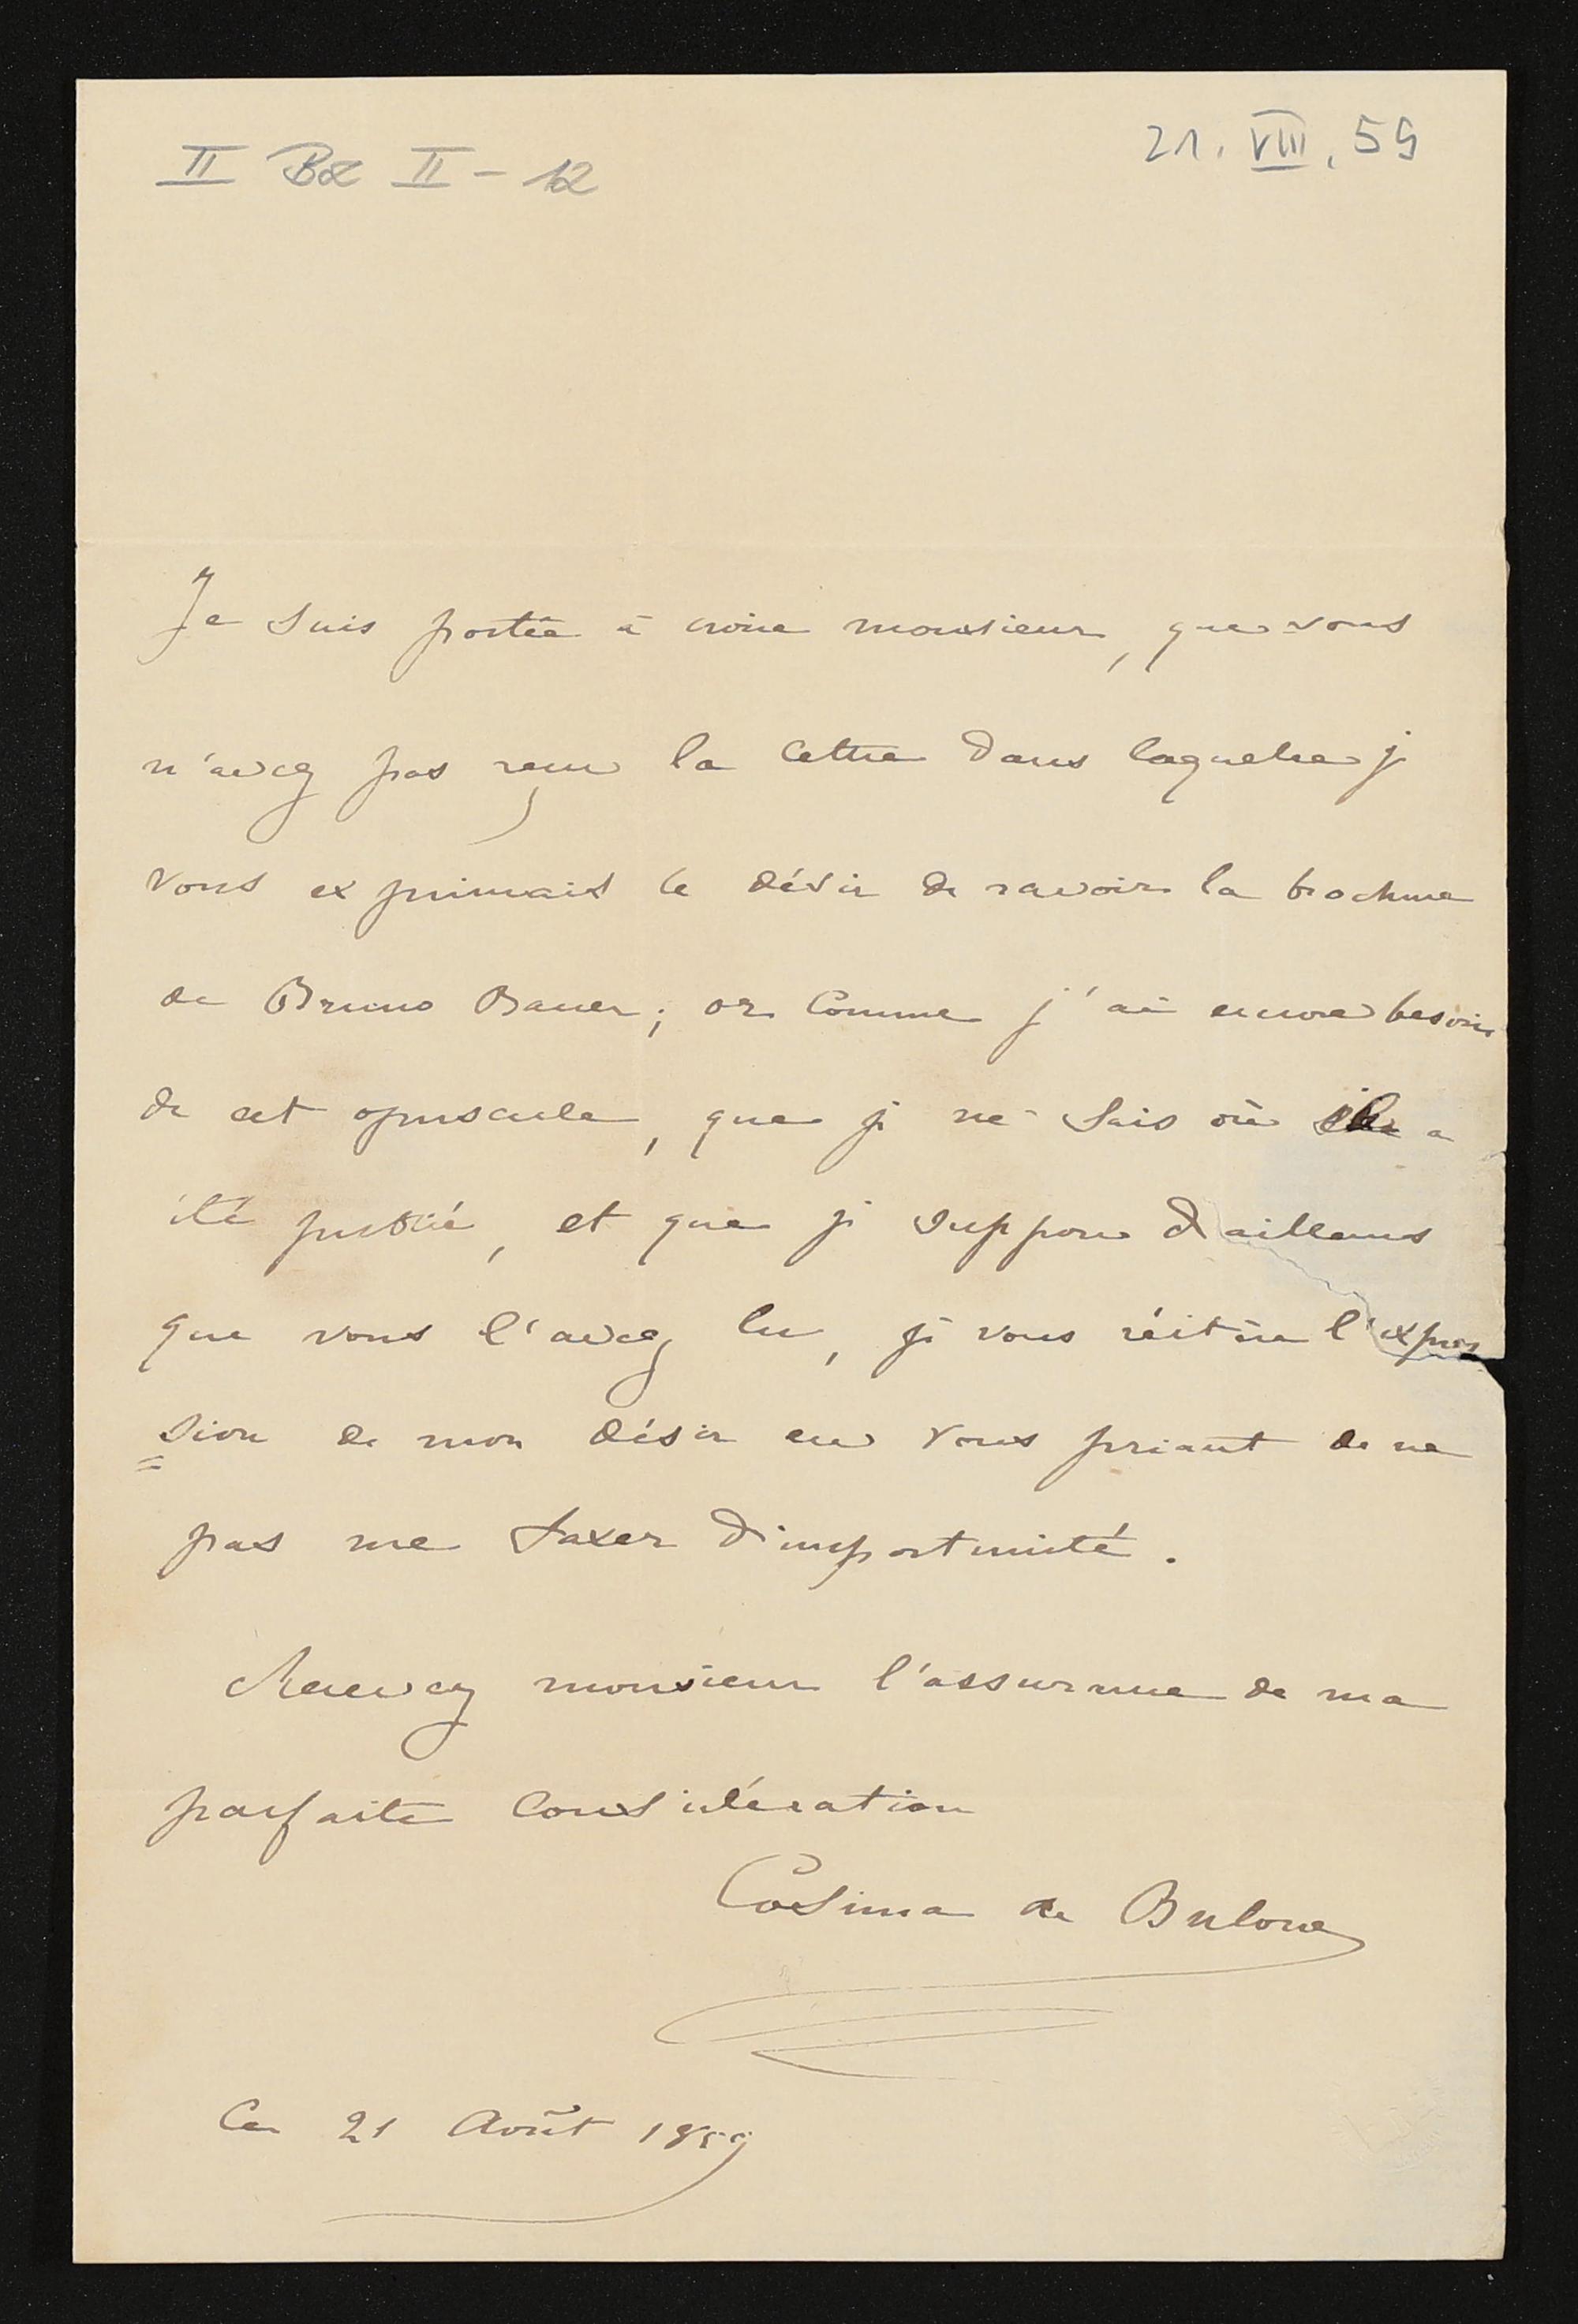 II Bd II - 12
21. VIII. 59
Je suis portée à croire monsieur, que vous
n'avez pas reçu la lettre dans laquelle je
vous exprimais le désir de ravoir la brochure
de Bruno Bauer; or comme j'ai encore besoin
de cet opuscule, que je ne sais où il a
été publié, et que je suppose d'ailleurs
que vous l'avez lu, je vous réitère l'expres
=sion de mon désir en vous priant de ne
pas me taxer d'importunité.
Recevez monsieur l'assurance de ma
parfaite considération
Cosima de Bulow
Ce 21 Août 1859